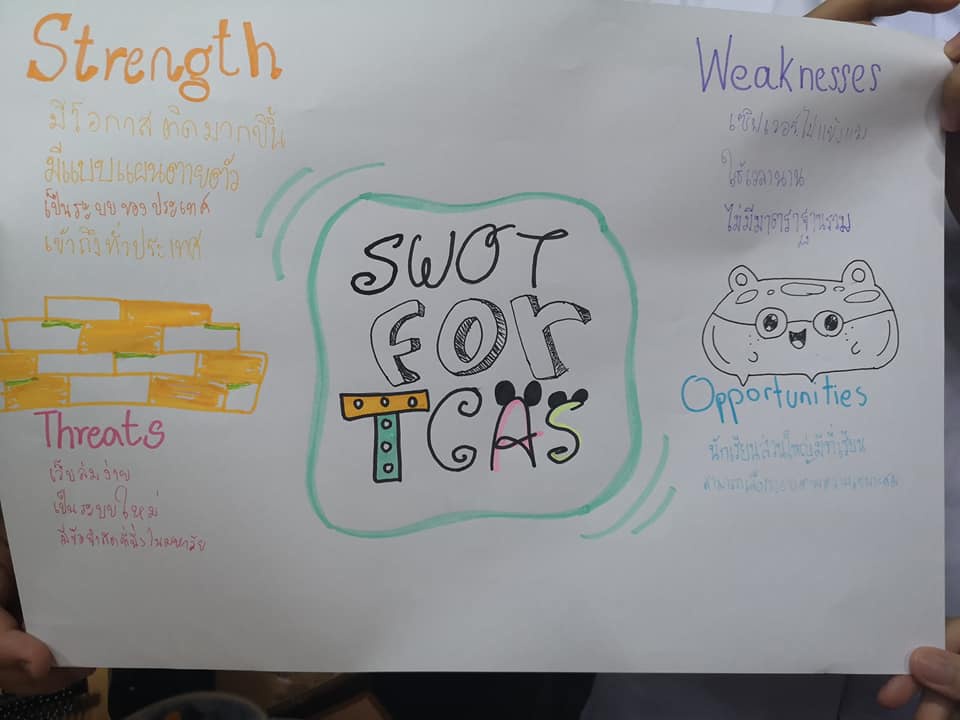 Strength
มีโอกาสติดมากขึ้น
มีแบบแผนตายตัว
เป็นระบบของประเทศ
เข้าถึงทั่วประเทศ
Weaknesses
เซิฟเวอร์ไม่แข็งแรง
ใช้เวลานาน
ไม่มีมาตราฐานรวม
SWOT
FOR
TCAS
Threats
เว็บล่มง่าย
เป็นระบบใหม่
Opportunities
นักเรียนส่วนใหญ่มีที่เรียน